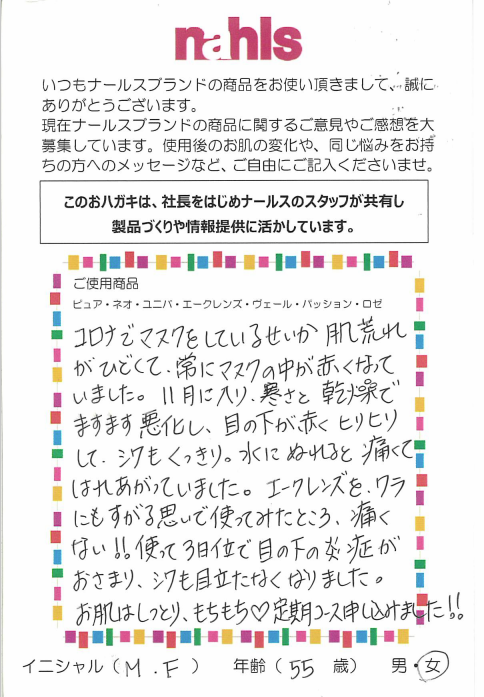 nahls
いつもナールスブランドの商品をお使い頂きまして、誠に
ありがとうございます。
現在ナールスブランドの商品に関するご意見やご感想を大
募集しています。使用後のお肌の変化や、同じ悩みをお持
ちの方へのメッセージなど、ご自由にご記入くださいませ。
このおハガキは、社長をはじめナールスのスタッフが共有し
製品づくりや情報提供に活かしています。
ご使用商品
ピュア・ネオ・ユニバ・エークレンズ・ヴェール・パッション・ロゼ
コロナでマスクをしているせいか肌荒れ
がひどくて、常にマスクの中が赤くなって
いました。11月に入り、寒さと乾燥で
ますます悪化し、目の下が赤くヒリヒリ
して、シワもくっきり。水にぬれると痛くて
はれあがっていました。エークレンズを、ワラ
にもすがる思いで使ってみたところ、痛く
ない!!使って3日位で目の下の炎症が
おさまり、シワも目立たなくなりました。
お肌はしっとり、もちもち♡定期コース申し込みました!!
イニシャル(M.F) 年齢(55歳) 男・女